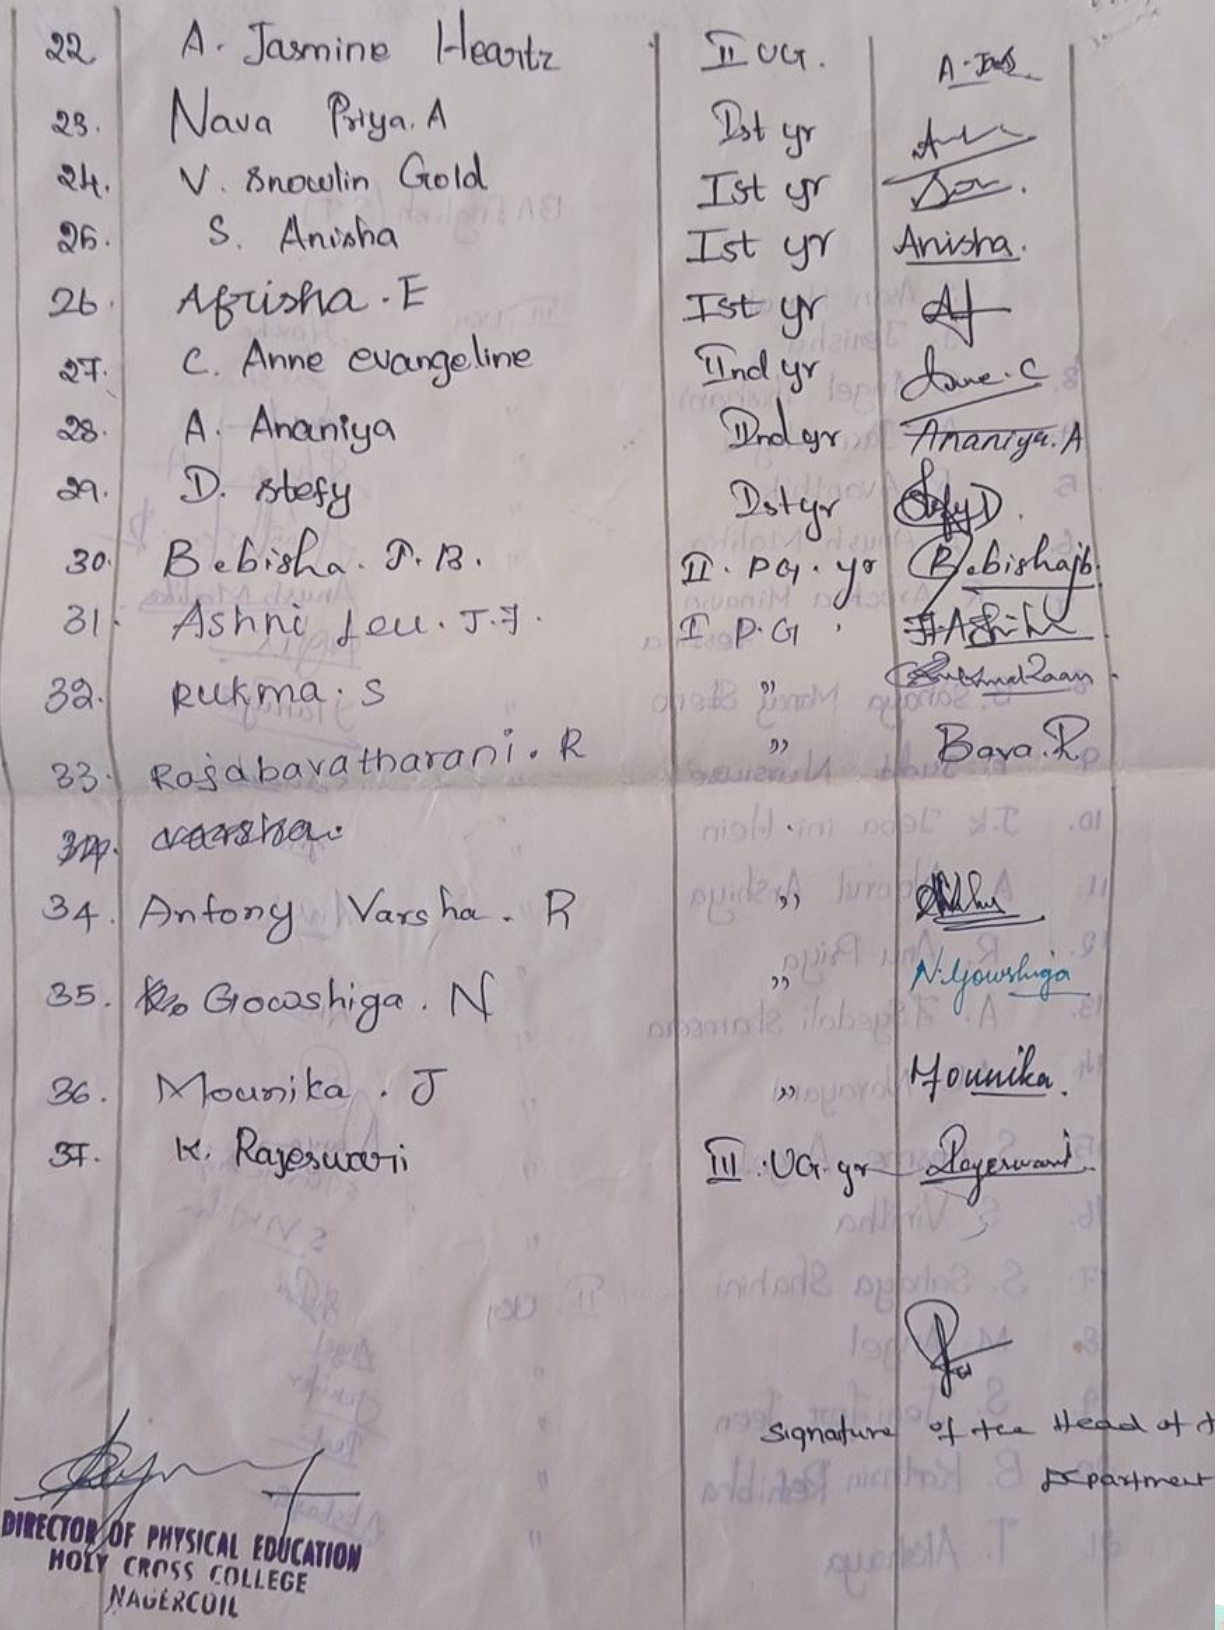 22. A. Jasmine Heartz II UG. A. Jas
23. Nava Priya. A Ist yr
24. V. Snowlin Gold Ist yr
25. S. Anisha Ist yr Anisha.
26. Afrisha. E Ist yr Af
27. C. Anne evangeline IInd yr Anne. C
28. A. Ananiya IInd yr Ananiya. A
29. D. Stefy Ist yr Stefy D.
30. Bebisha. J. B. II. PG. yr Bebishajb.
31. Ashni Leu. J.J. I P.G
32. Rukma. S "
33. Rajabavatharani. R " Bava. R
34. Varsha.
34. Antony Varsha. R "
35. Gowshiga. N " N. Gowshiga
36. Mounika. J " Mounika.
37. K. Rajeswari III. UG. yr Rajeswari
Signature of the Head of t
Department
DIRECTOR OF PHYSICAL EDUCATION
HOLY CROSS COLLEGE
NAGERCOIL